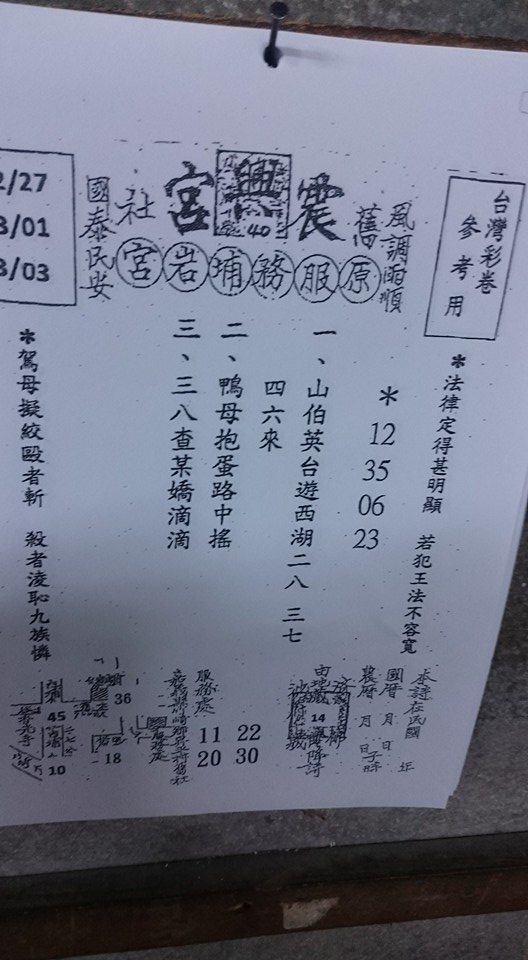 台灣彩卷
參考用
風調雨順
舊
震興宮
40
社
國泰民安
原服務埔岩宮
2/27
3/01
3/03
*法律定得甚明顯 若犯王法不容寬
*12 35 06 23
一、山伯英台遊西湖二八 三七
四六來
二、鴨母抱蛋路中搖
三、三八查某嬌滴滴
*駕母擬絞毆者斬 殺者淩恥九族憐
本詩在民國 年
國曆 月 日
農曆 月 日子時
14
降詩
服務處
11 22
20 30
36
45
18
10